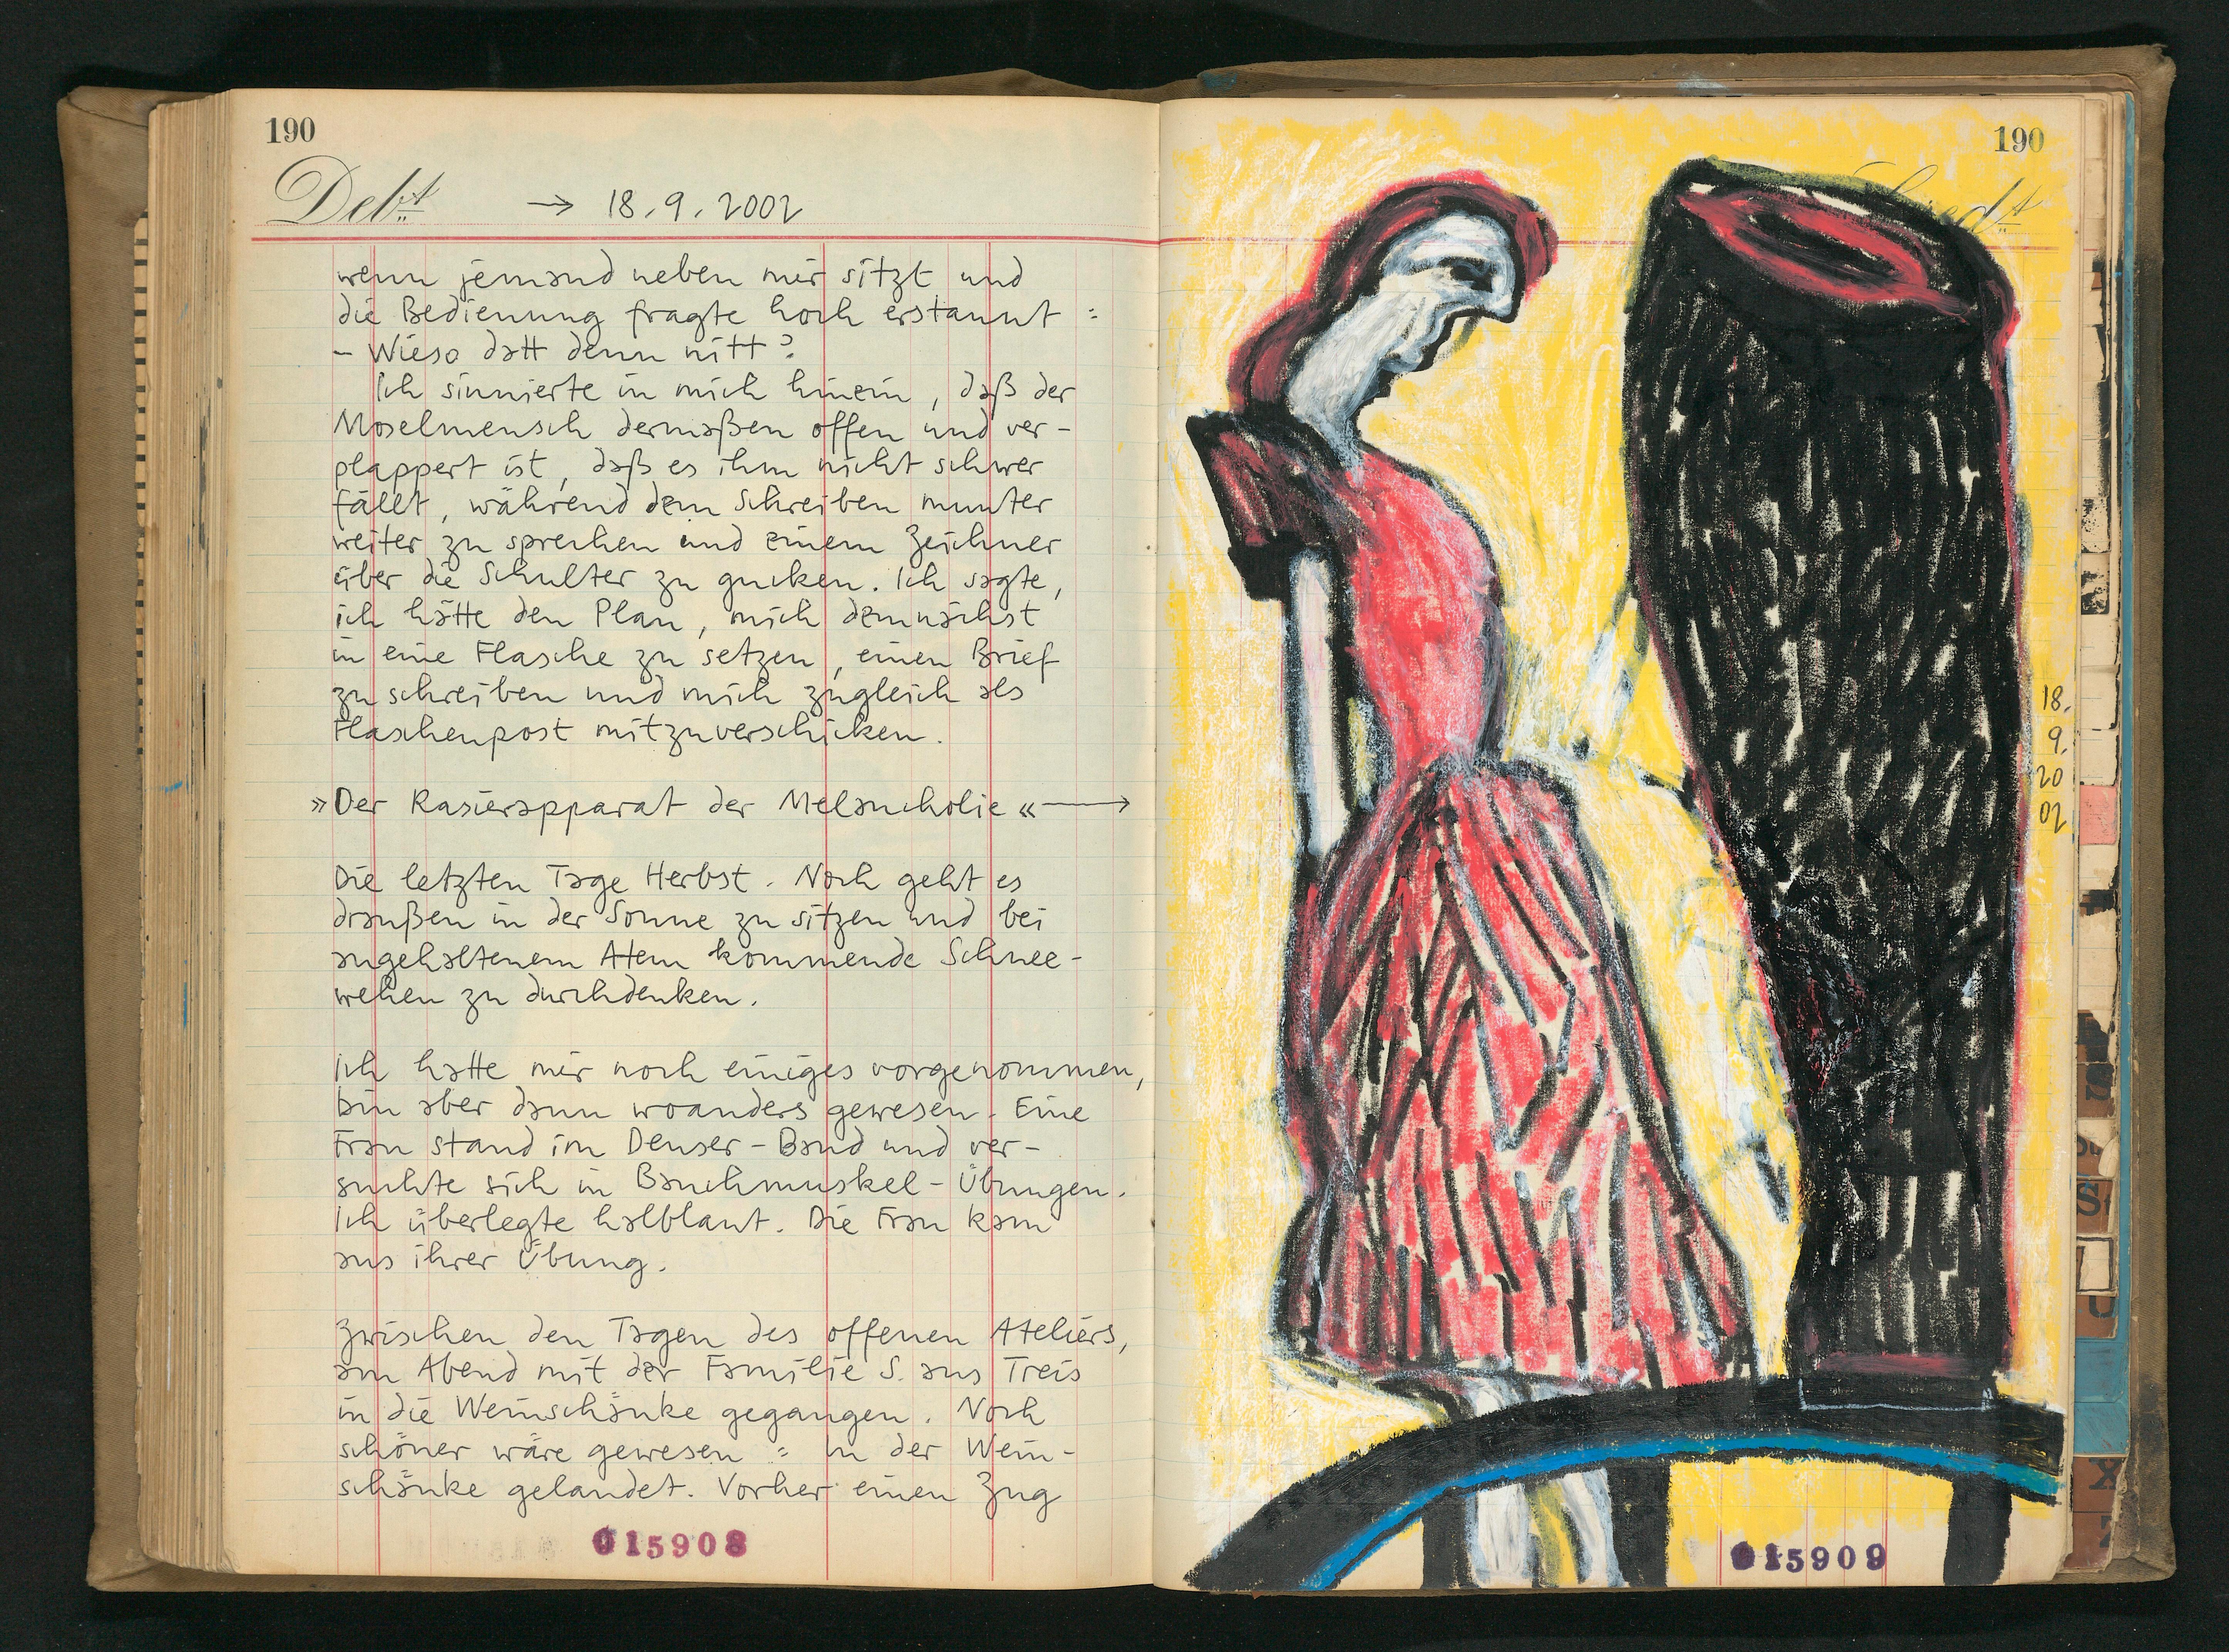 190
Debt
→ 18.9.2002
wenn jemand neben mir sitzt und
die Bedienung fragte hoch erstaunt :
– Wieso datt denn nitt?
Ich sinnierte in mich hinein, daß der
Moselmensch dermaßen offen und ver-
plappert ist, daß es ihm nicht schwer
fällt, während dem Schreiben munter
weiter zu sprechen und einem Zeichner
über die Schulter zu gucken. Ich sagte,
ich hätte den Plan, mich demnächst
in eine Flasche zu setzen, einen Brief
zu schreiben und mich zugleich als
Flaschenpost mitzuverschicken.
»Der Rasierapparat der Melancholie« →
Die letzten Tage Herbst. Noch geht es
draußen in der Sonne zu sitzen und bei
angehaltenem Atem kommende Schnee-
wehen zu durchdenken.
Ich hatte mir noch einiges vorgenommen,
bin aber dann woanders gewesen. Eine
Frau stand im Denser-Band und ver-
suchte sich in Bauchmuskel-Übungen.
Ich überlegte halblaut. Die Frau kam
aus ihrer Übung.
Zwischen den Tagen des offenen Ateliers,
am Abend mit der Familie S. aus Treis
in die Weinschänke gegangen. Noch
schöner wäre gewesen : In der Wein-
schänke gelandet. Vorher einen Zug
015908
190
18.
9.
20
02
015909